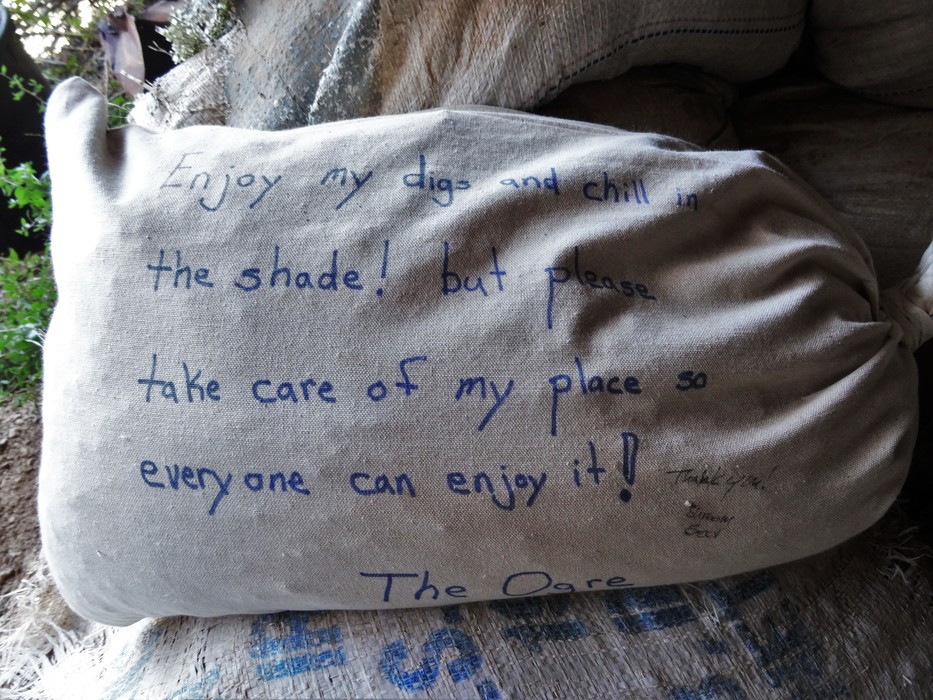 Enjoy my digs and chill in
the shade! but please
take care of my place so
everyone can enjoy it!
Thank you!
The Ogre